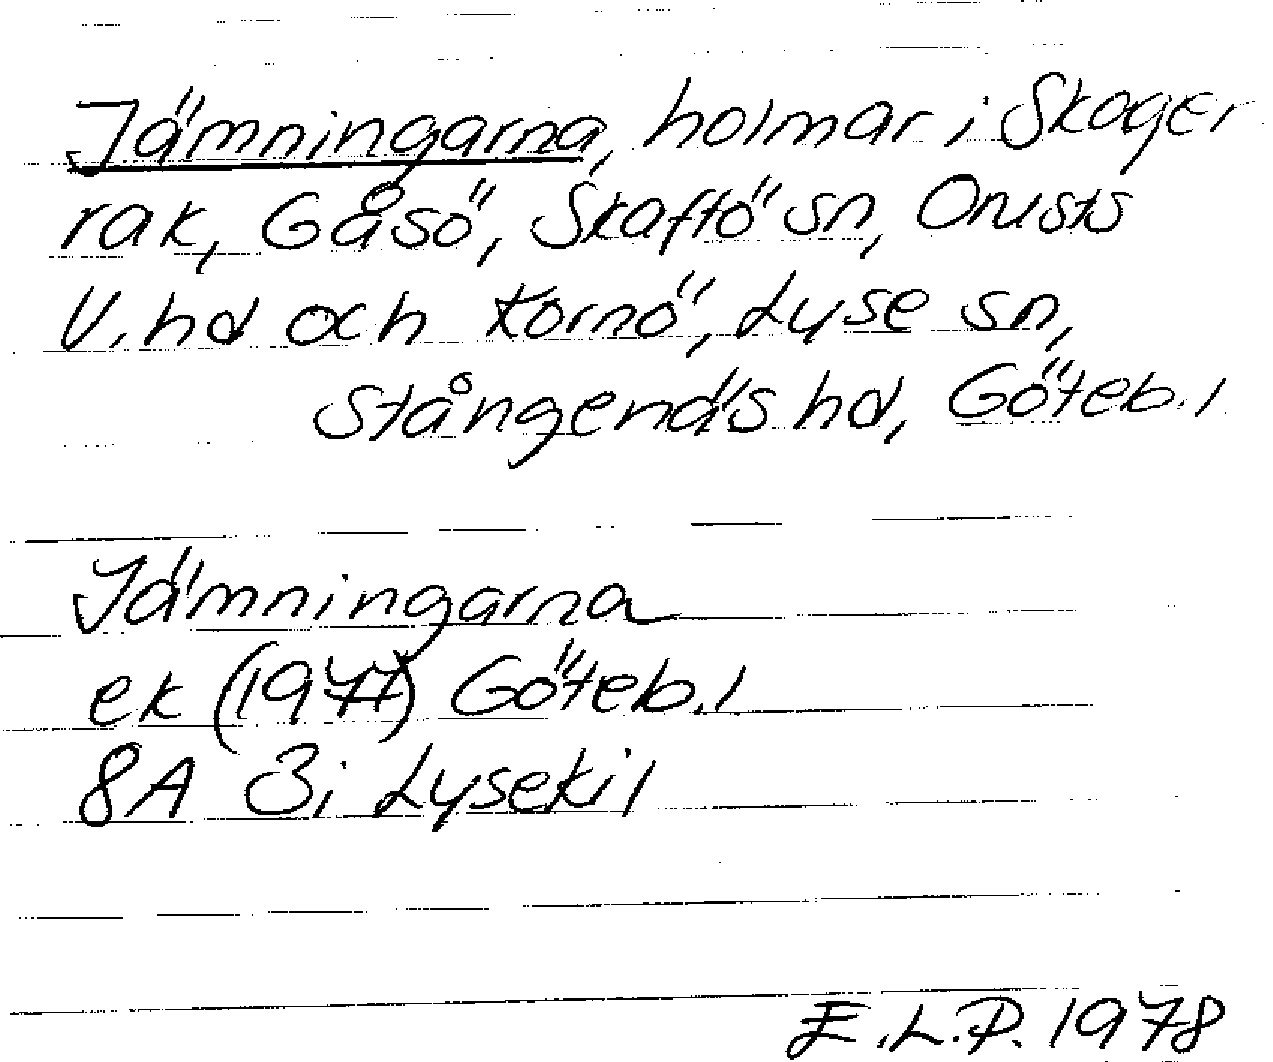 Jämningarna, holmar i Skager
rak, Gåsö, Skaftö sn, Orusts
V. hd och Kornö, Lyse sn,
Stångenäs hd, Göteb. l
Jämningarna
ek (1977) Göteb. l
8A 3i Lysekil
E.L.P. 1978